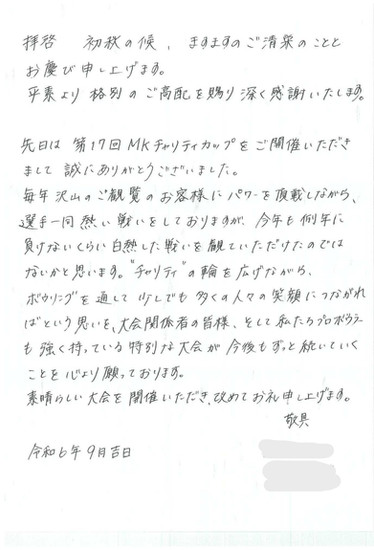 拝啓 初秋の候、ますますのご清栄のことと
お慶び申し上げます。
平素より格別のご高配を賜り深く感謝いたします。
先日は第17回MKチャリティカップをご開催いただき
まして誠にありがとうございました。
毎年沢山のご観覧のお客様にパワーを頂戴しながら、
選手一同熱い戦いをしておりますが、今年も例年に
負けないくらい白熱した戦いを観ていただけたのでは
ないかと思います。"チャリティ"の輪を広げながら、
ボウリングを通して少しでも多くの人々の笑顔につながれ
ばという思いを、大会関係者の皆様、そして私たちプロボウラー
も強く持っている特別な大会が今後もずっと続いていく
ことを心より願っております。
素晴らしい大会を開催いただき、改めてお礼申し上げます。
敬具
令和6年9月吉日